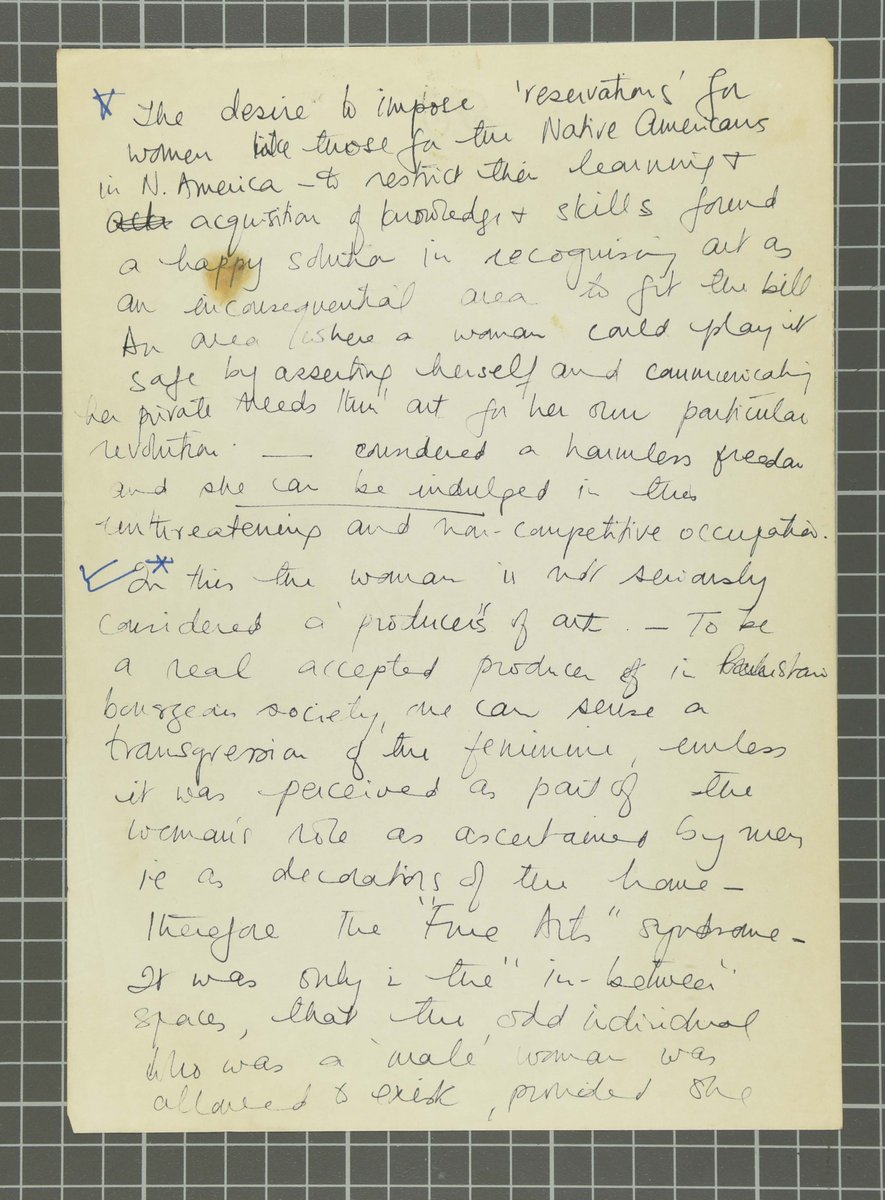 The desire to impose 'reservations' for
women like those for the Native Americans
in N. America – to restrict their learning &
acquisition of knowledge & skills found
a happy solution in recognising art as
an inconsequential area to fit the bill
An area where a woman could play it
safe by asserting herself and communicating
her private needs thru' art for her own particular
revolution. — considered a harmless freedom
and she can be indulged in this
unthreatening and non-competitive occupation.
In this the woman is not seriously
considered a 'producer's of art. – To be
a real accepted producer of in Pakistani
bourgeois society, one can sense a
transgression of the feminine, unless
it was perceived as part of the
woman's role as ascertained by men
ie as decorators of the home –
Therefore The "Fine Arts" syndrome –
It was only in the "in-between"
spaces, that the odd individual
who was a 'male' woman was
allowed to exist, provided she